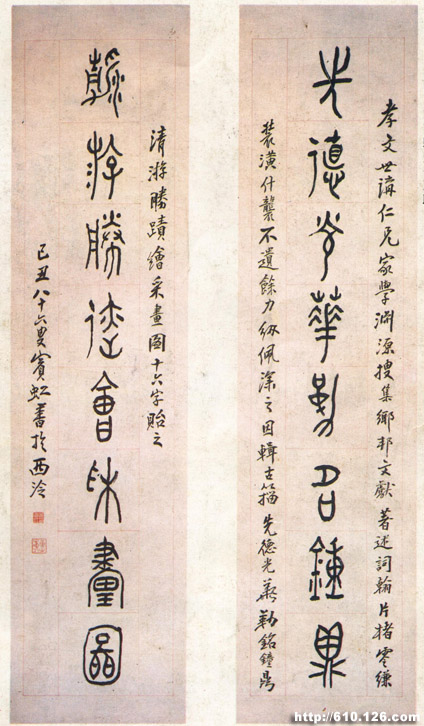 孝文世講仁兄家學淵源搜集鄉邦文獻著述詞翰片楮零縑
先德光華勒銘鐘鼎
裝潢什襲不遺餘力紉佩深之因輯古籀先德光華勒銘鐘鼎
清游勝蹟繪采畫圖十六字貽之
清游勝蹟繪采畫圖
己丑八十六叟賓虹書於西泠
http://610.126.com/